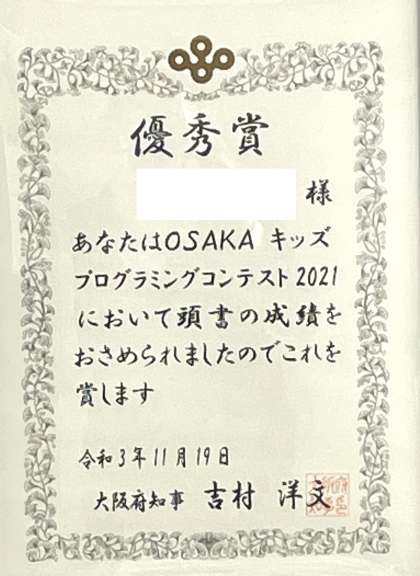 優秀賞
様
あなたはOSAKA キッズ
プログラミングコンテスト2021
において頭書の成績を
おさめられましたのでこれを
賞します
令和3年11月19日
大阪府知事 吉村 洋文